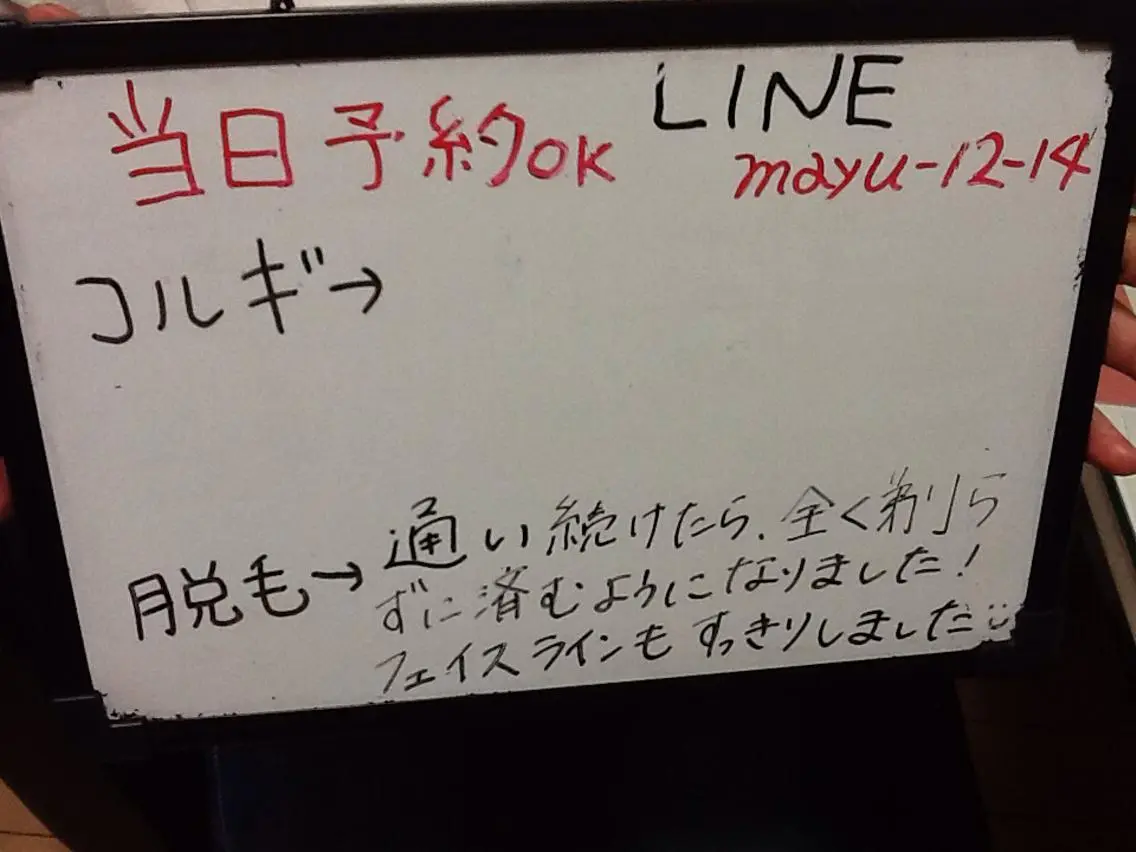 当日予約OK
LINE
mayu-12-14
コルギ→
脱毛→通い続けたら、全く剃ら
ずに済むようになりました!
フェイスラインもすっきりしました